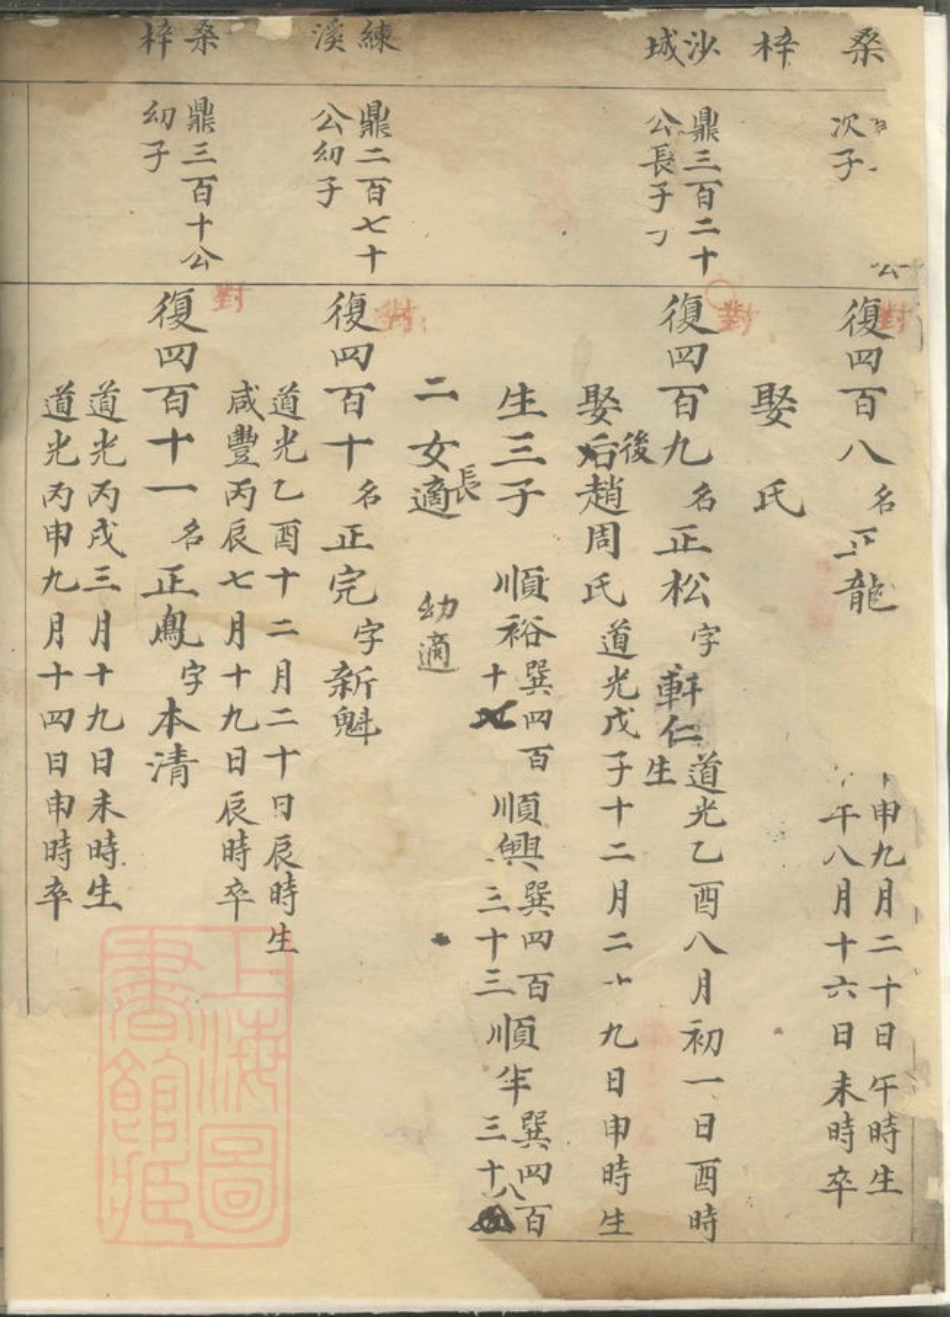 桑
次子
公
對
復四百八名正龍
申九月二十日午時生
午八月十六日未時卒
梓
娶 氏
沙
城
鼎三百二十
公長子
對
復四百九名正松字軒仁
道光乙酉八月初一日酉時
生
娶後趙周氏道光戊子十二月二十九日申時生
生三子 順裕巽四百十 順興巽四百三十三 順年巽四百三十八
二女長適 幼適
練
溪
鼎二百七十
公幼子
對
復四百十名正完字新魁
道光乙酉十二月二十日辰時生
咸豐丙辰七月十九日辰時卒
桑
梓
鼎三百十公
幼子
對
復四百十一名正鳳字本清
道光丙戌三月十九日未時生
道光丙申九月十四日申時卒
上海圖
書館藏